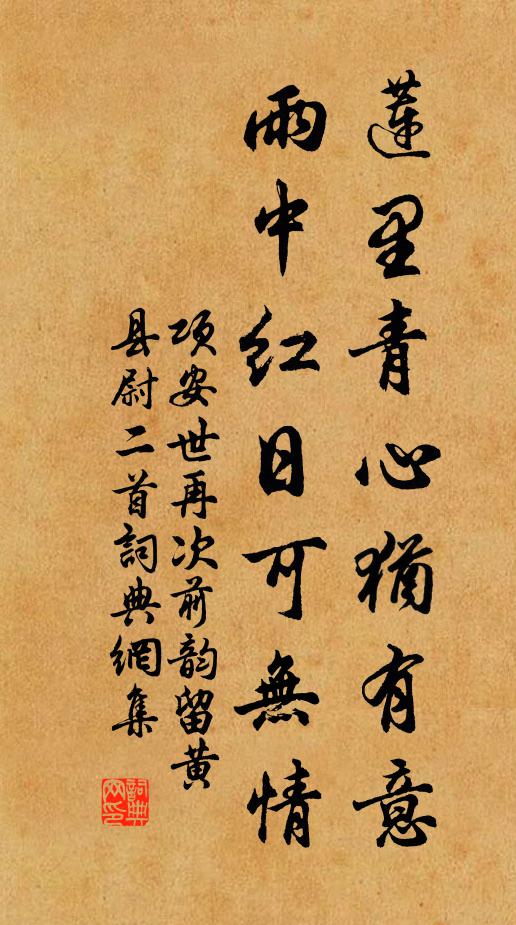 蓮里青心猶有意
雨中紅日可無情
项安世再次前韵留黄
县尉二首詞典網集
詞典网印